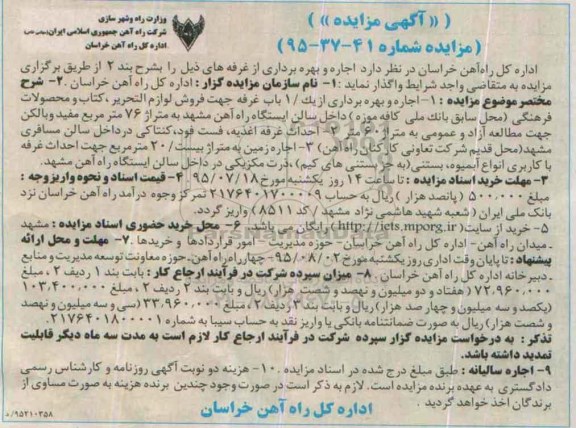 وزارت راه وشهر سازی
شرکت راه آهن جمهوری اسلامی ایران(سهامی خاص)
اداره کل راه آهن خراسان
( (( آگهی مزایده )) )
( مزایده شماره ۴۱-۳۷-۹۵ )
اداره کل راه‌آهن خراسان در نظر دارد اجاره و بهره برداری از غرفه های ذیل را بشرح بند ۲ از طریق برگزاری
مزایده به متقاضی واجد شرایط واگذار نماید : ۱- نام سازمان مزایده گزار : اداره کل راه آهن خراسان . ۲- شرح
مختصر موضوع مزایده : ۱-اجاره و بهره برداری از یک /۱ باب غرفه جهت فروش لوازم التحریر ، کتاب و محصولات
فرهنگی (محل سابق بانک ملی کافه موزه ) داخل سالن ایستگاه راه آهن مشهد به متراژ ۷۶ متر مربع مفید وبالکن
جهت مطالعه آزاد و عمومی به متراژ ۶۰ متر ۲- احداث غرفه اغذیه، فست فود،کنتاکی درداخل سالن مسافری
مشهد(محل قدیم شرکت تعاونی کارکنان راه آهن) ۳-اجاره زمین به متراژ بیست/ ۲۰ مترمربع جهت احداث غرفه
با کاربری انواع آبمیوه، بستنی(به جز بستنی های کیم) ،ذرت مکزیکی در داخل سالن ایستگاه راه آهن مشهد.
۳- مهلت خرید اسناد مزایده : تا ساعت ۱۴ روز یکشنبه مورخ ۹۵/۰۷/۱۸ ۴- قیمت اسناد و نحوه واریز وجه :
مبلغ ۵۰۰.۰۰۰ (پانصد هزار ) ریال به حساب ۲۱۷۶۴۰۱۷۰۰۰۰۹ تمرکز وجوه درآمد راه آهن خراسان نزد
بانک ملی ایران ( شعبه شهید هاشمی نژاد مشهد / کد ۸۵۱۱ ) واریز گردد.
۵- خرید از سایت( http://iets.mporg.ir)رایگان می باشد. ۶- محل خرید حضوری اسناد مزایده : مشهد
ـ میدان راه آهن- اداره کل راه آهن خراسان- حوزه مدیریت- امور قراردادها و خریدها .۷- مهلت و محل ارائه
پیشنهاد : تا پایان وقت اداری روز یکشنبه مورخ ۹۵/۰۸/۰۲- چهارراه راه آهن- حوزه معاونت توسعه مدیریت و منابع
ـ دبیر خانه اداره کل راه آهن خراسان . ۸- میزان سپرده شرکت در فرآیند ارجاع کار : بابت بند ۱ ردیف ۲ ، مبلغ
۷۲.۹۶۰.۰۰۰ ( هفتاد و دو میلیون و نهصد و شصت هزار) ریال و بابت بند ۲ ردیف ۲ ، مبلغ ۱۰۳.۴۰۰.۰۰۰
(یکصد و سه میلیون و چهار صد هزار) ریال و بابت بند ۳ ردیف ۲ ، مبلغ ۳۳.۹۶۰.۰۰۰ (سی و سه میلیون و نهصد
و شصت هزار) ریال به صورت ضمانتنامه بانکی یا واریز نقد به حساب سیبا به شماره ۲۱۷۶۴۰۱۸۰۰۰۰۱.
تذکر : به درخواست مزایده گزار سپرده شرکت در فرآیند ارجاع کار لازم است به مدت سه ماه دیگر قابلیت
تمدید داشته باشد.
۹- اجاره سالیانه : طبق مبلغ درج شده در اسناد مزایده . ۱۰- هزینه دو نوبت آگهی روزنامه و کارشناس رسمی
دادگستری به عهده برنده مزایده است. لازم به ذکر است در صورت وجود چندین برنده هزینه به صورت مساوی از
برندگان اخذ خواهد گردید .
اداره کل راه آهن خراسان
۹۵۲۱۰۳۵۸/ه